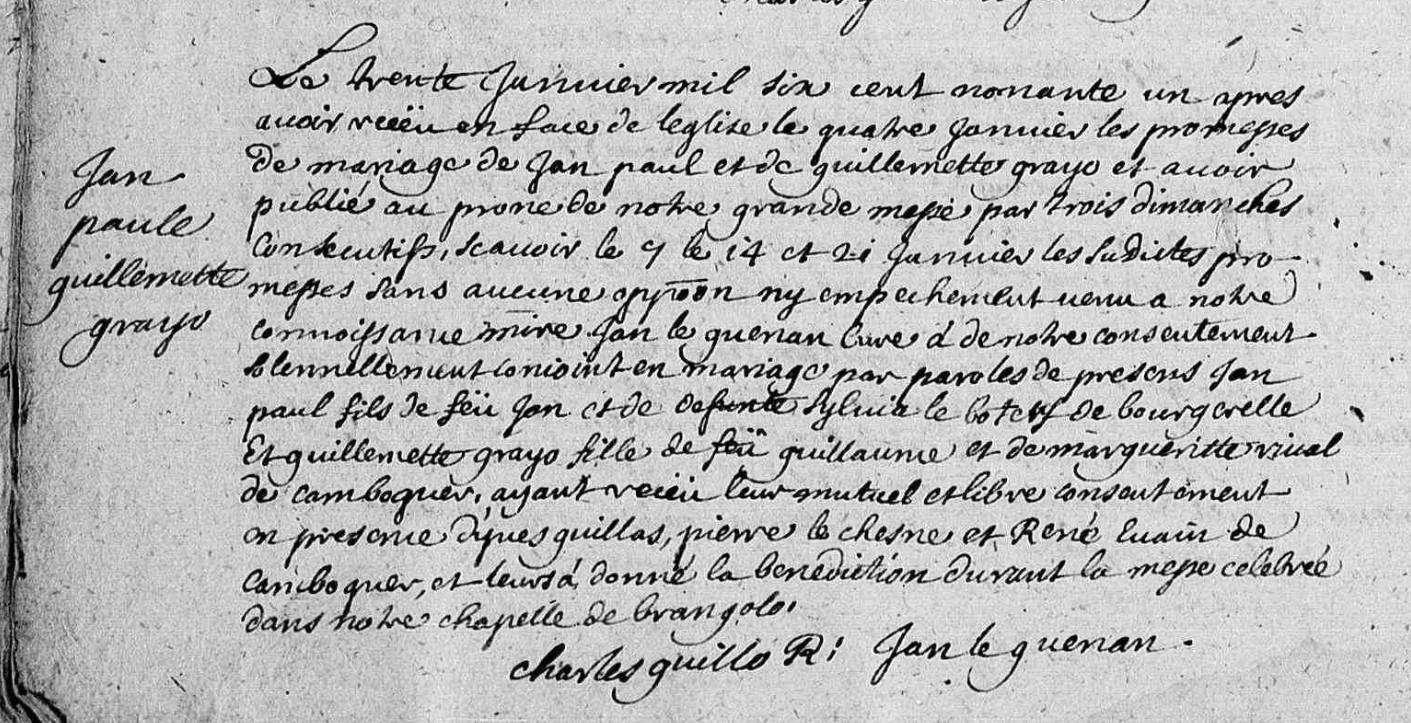 Jan
paule
guillemette
grayo
Le trente Januier mil six cent nonante un apres
auoir receü en face de leglise le quatre Januier les promesses
de mariage de Jan paul et de guillemette grayo et auoir
publié au prone de notre grande messe par trois dimanches
Consecutifs, scauoir le 7 le 14 et 21 Januier les sudictes pro-
messes sans aucune oppoon ny empechement uenu a notre
connoissance mire Jan le guenan Cure á de notre consentement
solennellement conioint en mariage par paroles de presens Jan
paul fils de feü Jan et de defunte Syluia le de bourgerelle
Et guillemette grayo fille de feü guillaume et de margueritte riual
de camboquer, ayant receu leur mutuel et libre consentement
en presence guillas, pierre le chesne et René de
Camboquer, et leurs á donné la benediction durant la messe celebrée
dans notre chapelle de brangolo.
charles guillo R: Jan le guenan.